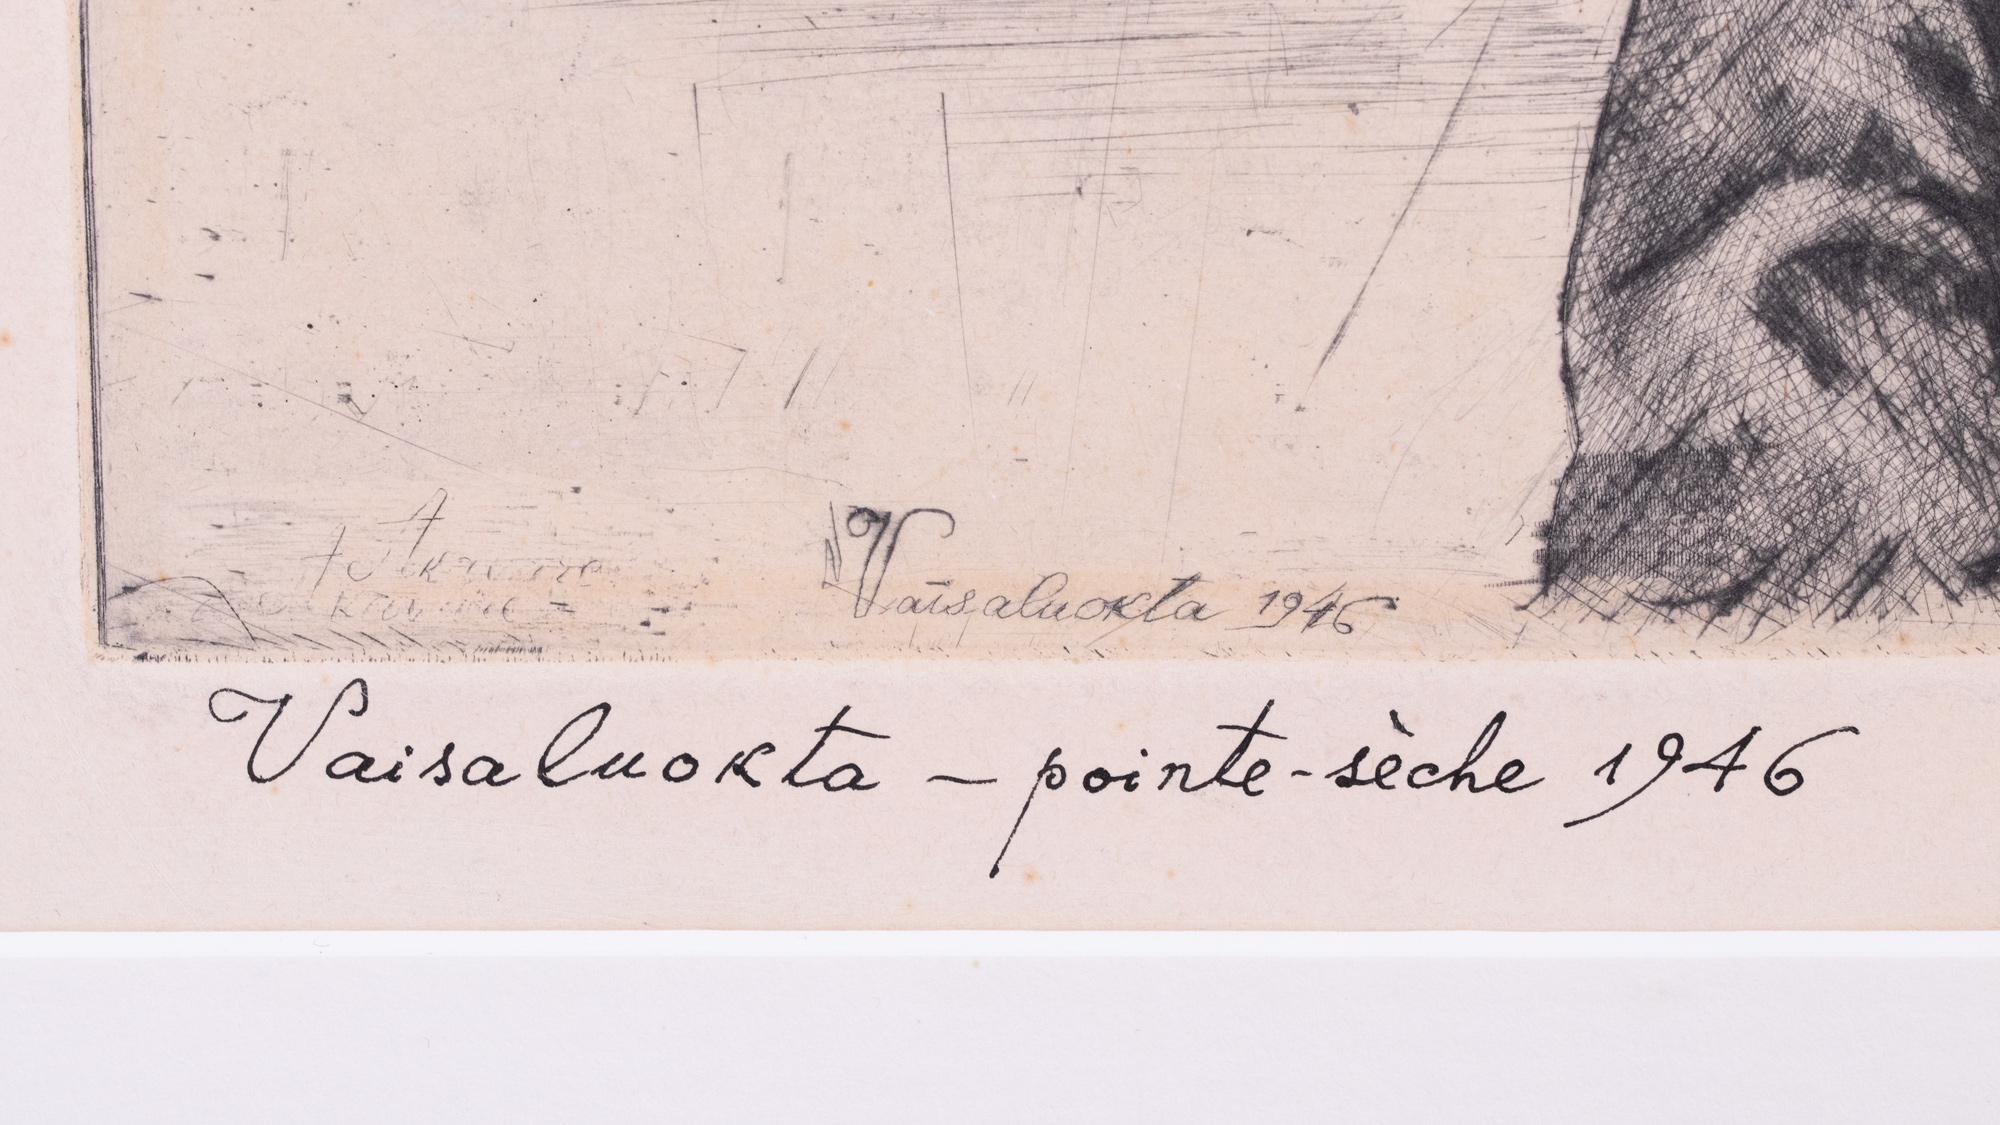 Vaisaluokta 1946
Vaisaluokta – pointe-sèche 1946